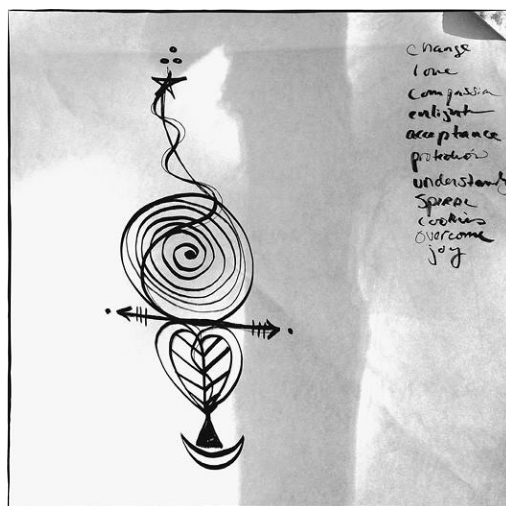 change
love
compassion
enlight
acceptance
protection
understandg
cookies
overcome
joy